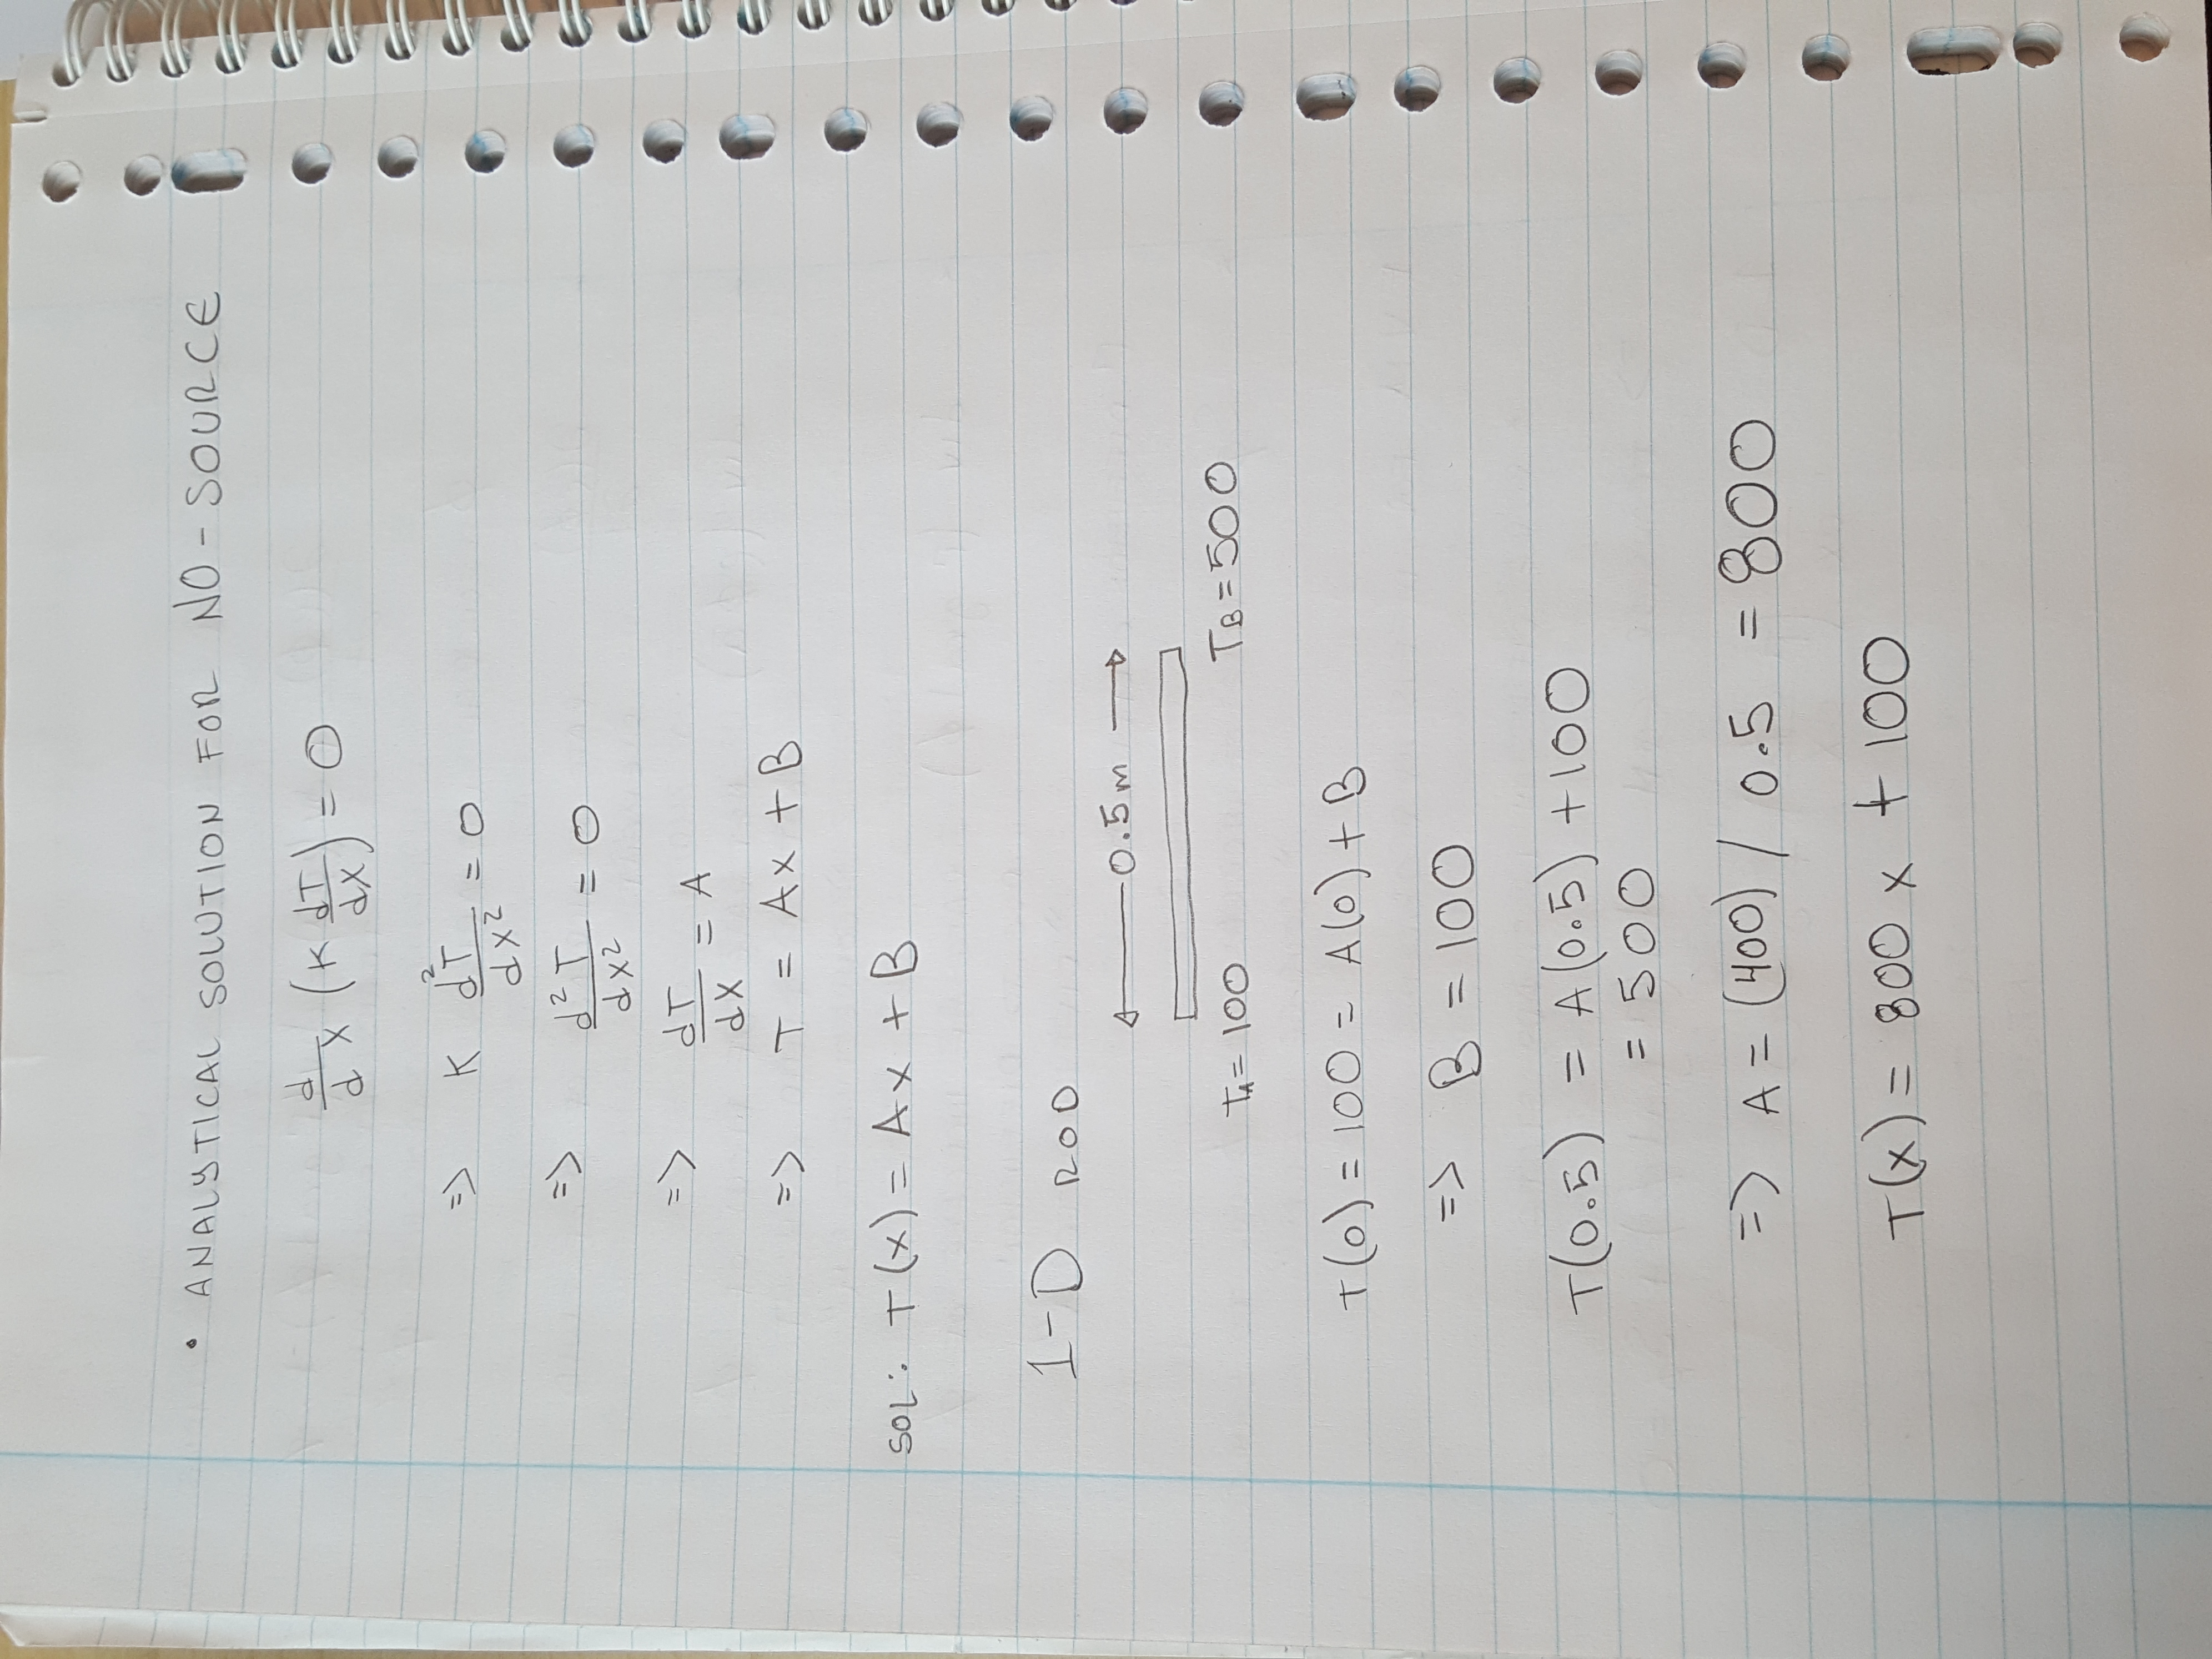 • ANALYTICAL SOLUTION FOR NO-SOURCE
d/dx (K dT/dx) = 0
=> K d²T/dx² = 0
=> d²T/dx² = 0
=> dT/dx = A
=> T = Ax + B
SOL: T(x) = Ax + B
1-D ROD
0.5m
T_A = 100 T_B = 500
T(0) = 100 = A(0) + B
=> B = 100
T(0.5) = A(0.5) + 100
= 500
=> A = (400) / 0.5 = 800
T(x) = 800 x + 100